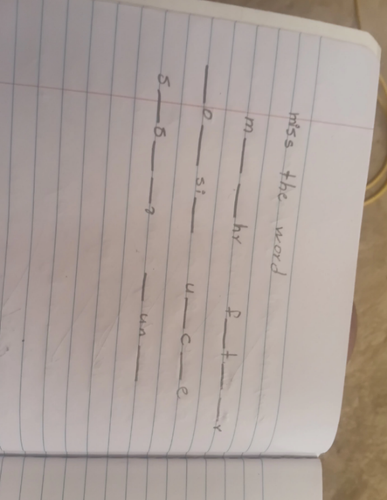 miss the word
m _ _ hr f _ t _ _ r
_ o _ si _ u _ c _ e
S _ S _ _ r _ un _